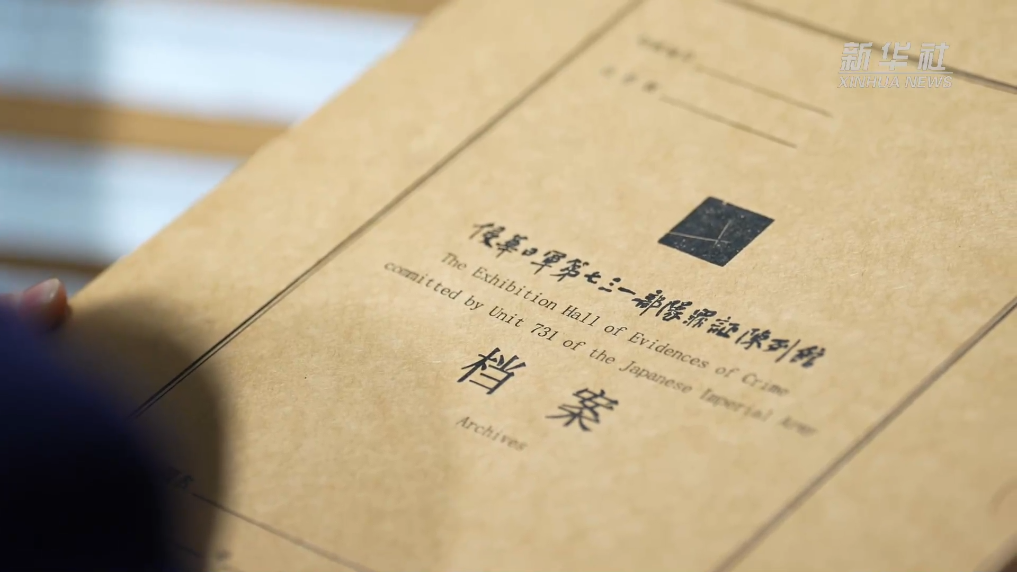 新华社
XINHUA NEWS
侵華日軍第七三一部隊罪証陳列館
The Exhibition Hall of Evidences of Crime
committed by Unit 731 of the Japanese Imperial Army
档案
Archives